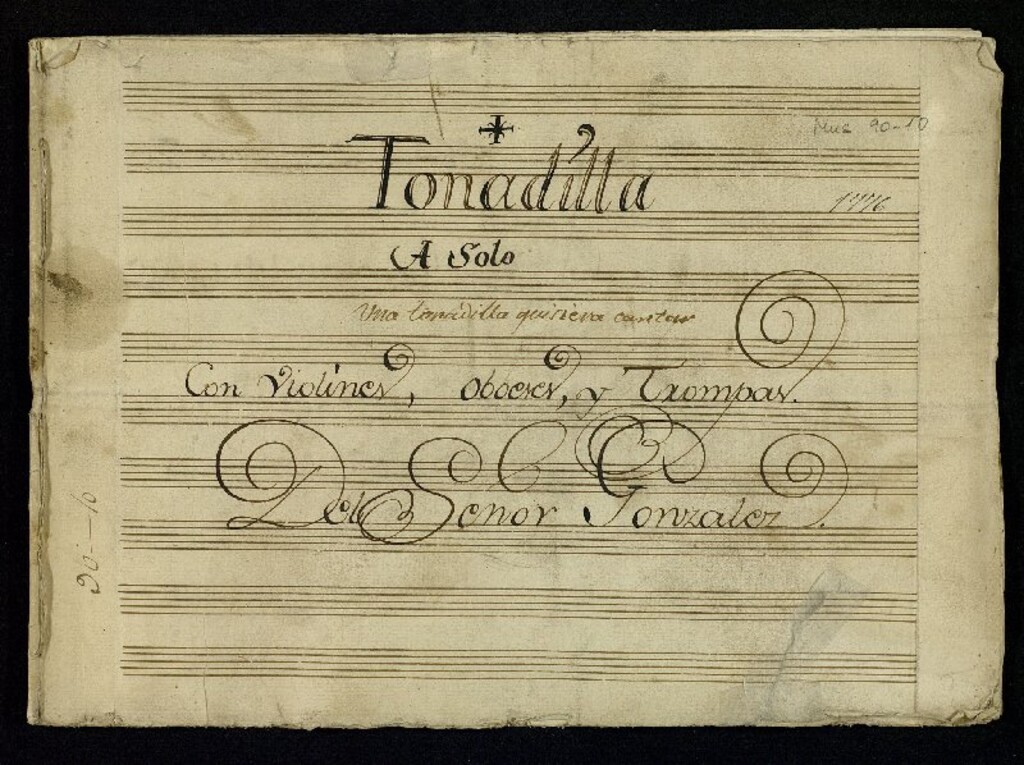 Mus 90-10
Tonadilla
1776
A Solo
Una tonadilla quisiera cantar
Con Violines, Oboeses, y Trompas.
Del Señor Gonzalez.
90-10